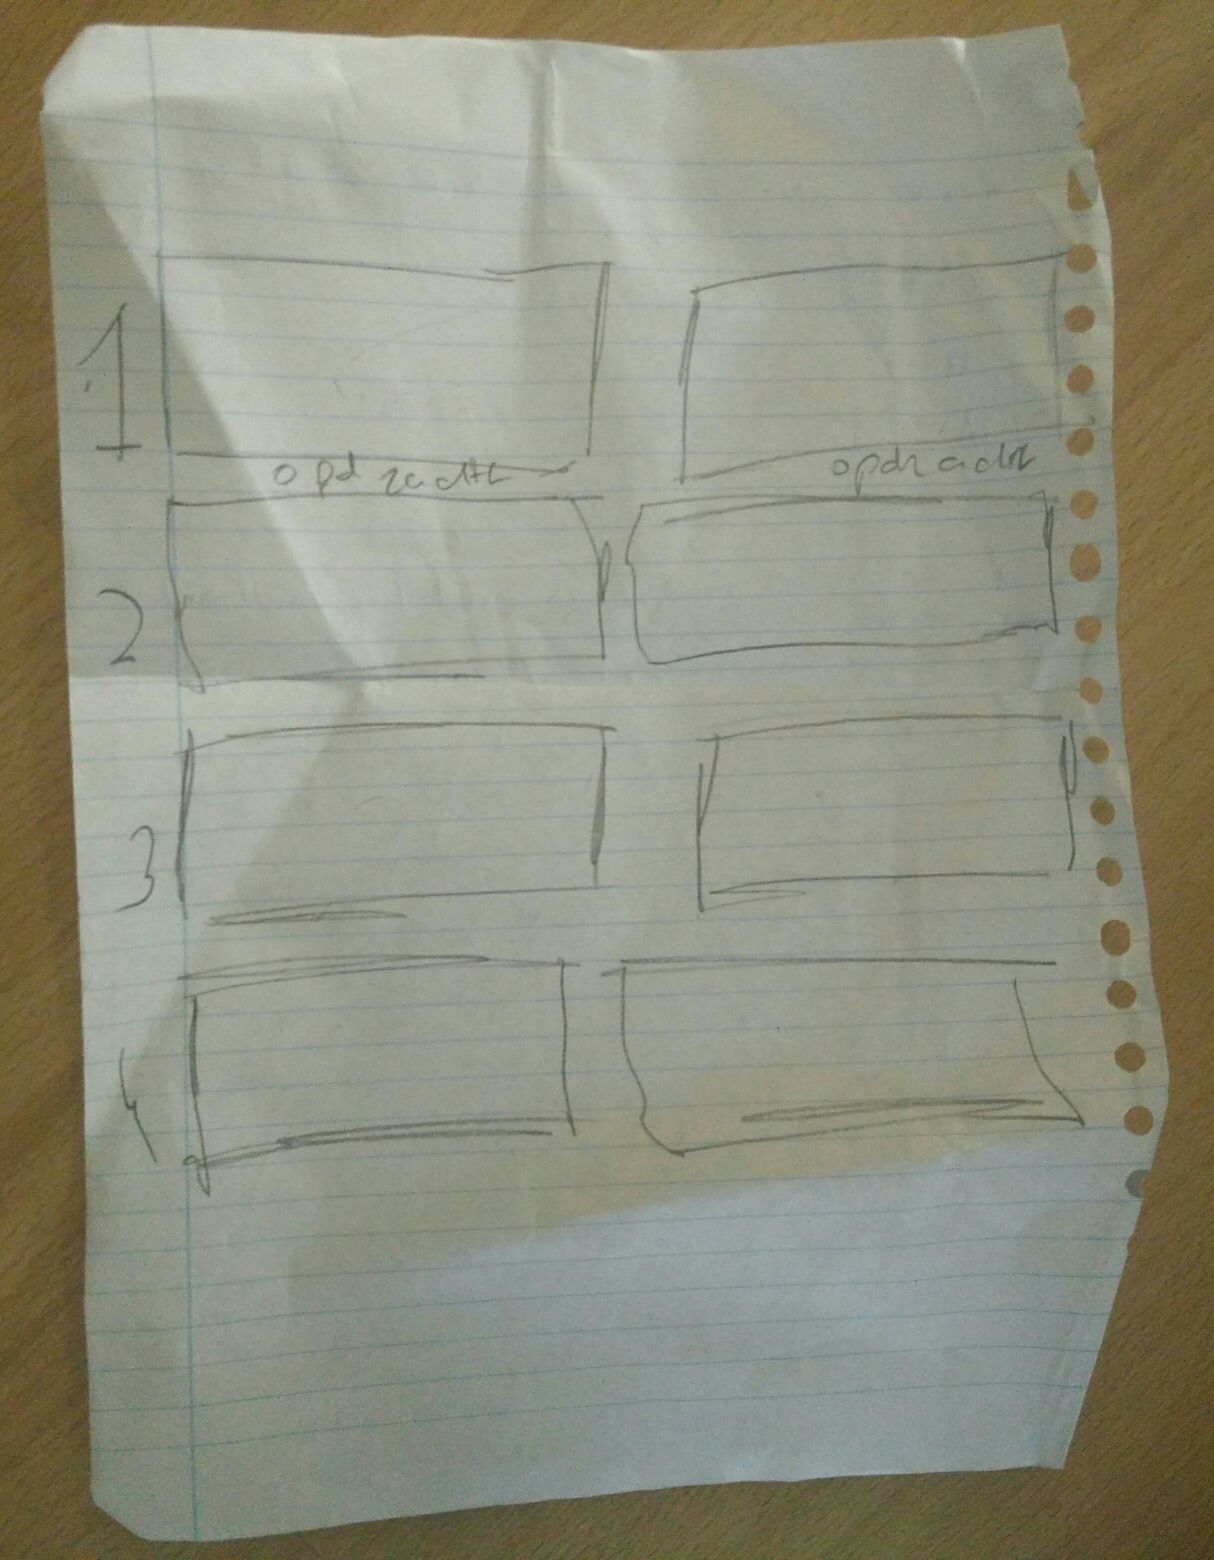 1
opdracht opdracht
2
3
4